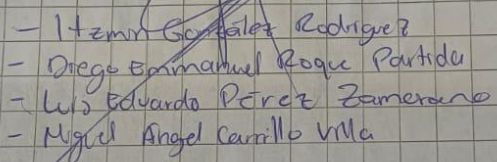 - Itzmin González Rodriguez
- Diego Emmanuel Roque Partida
- Luis Eduardo Pérez Zamerano
- Miguel Angel Carrillo Villa